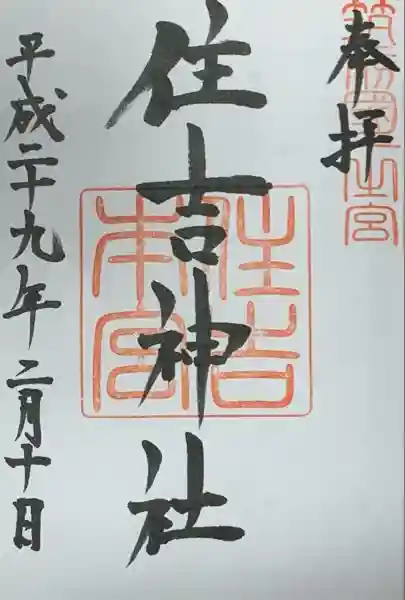 奉拝
筑前国一之宮
住吉神社
住吉本宮
平成二十九年二月十日